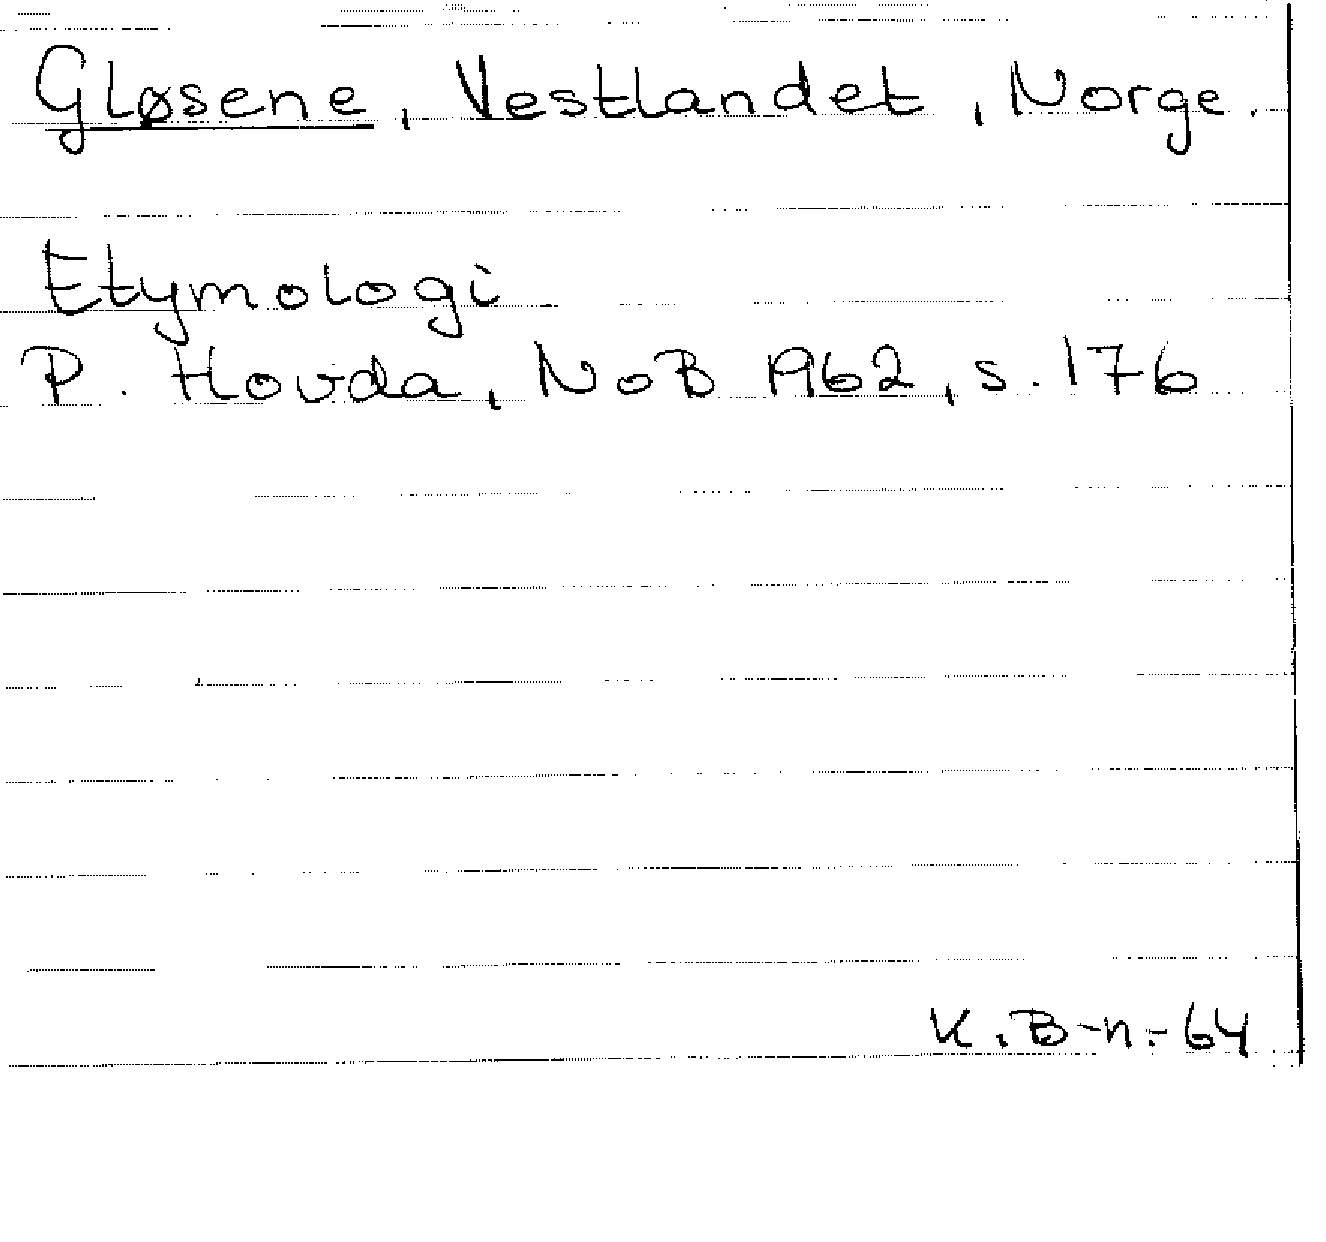 Gløsene, Vestlandet, Norge.
Etymologi
P. Hovda, NoB 1962, s. 176
K.B-n.-64